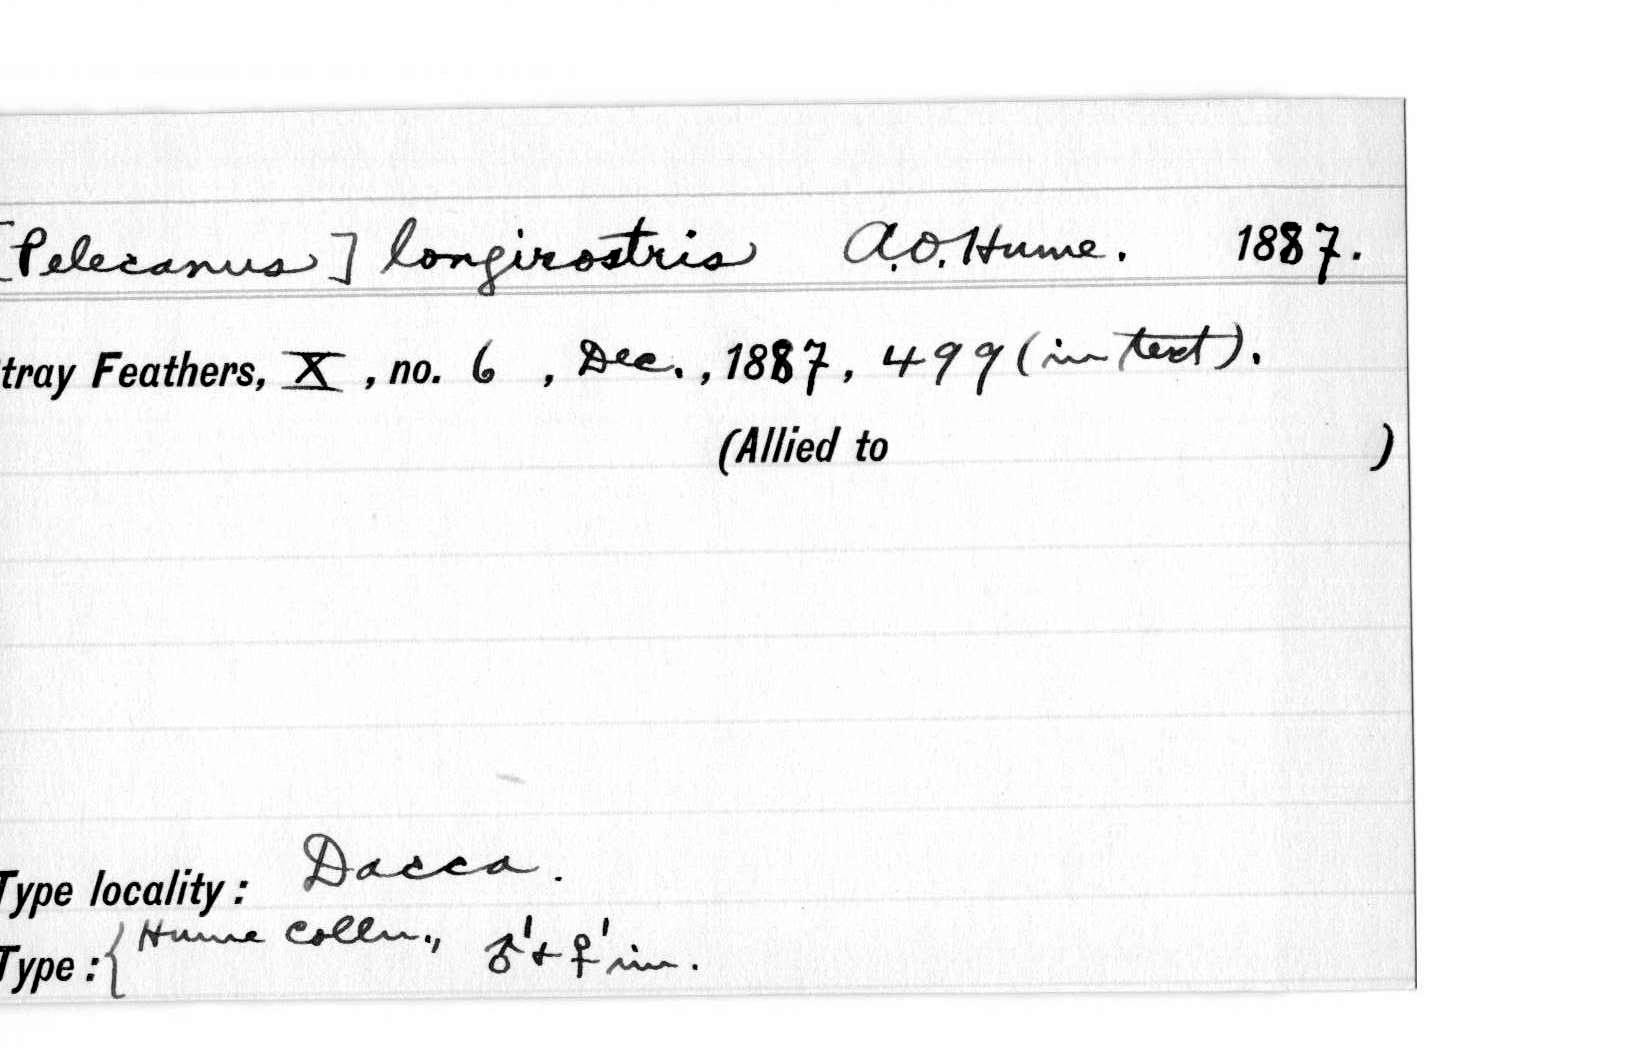 [Pelecanus] longirostris A.O.Hume. 1887.
tray Feathers, X, no. 6, Dec., 1887, 499 (in text).
(Allied to )
Type locality: Dacca.
Type: { Hume Colln., ♂' + ♀' im.